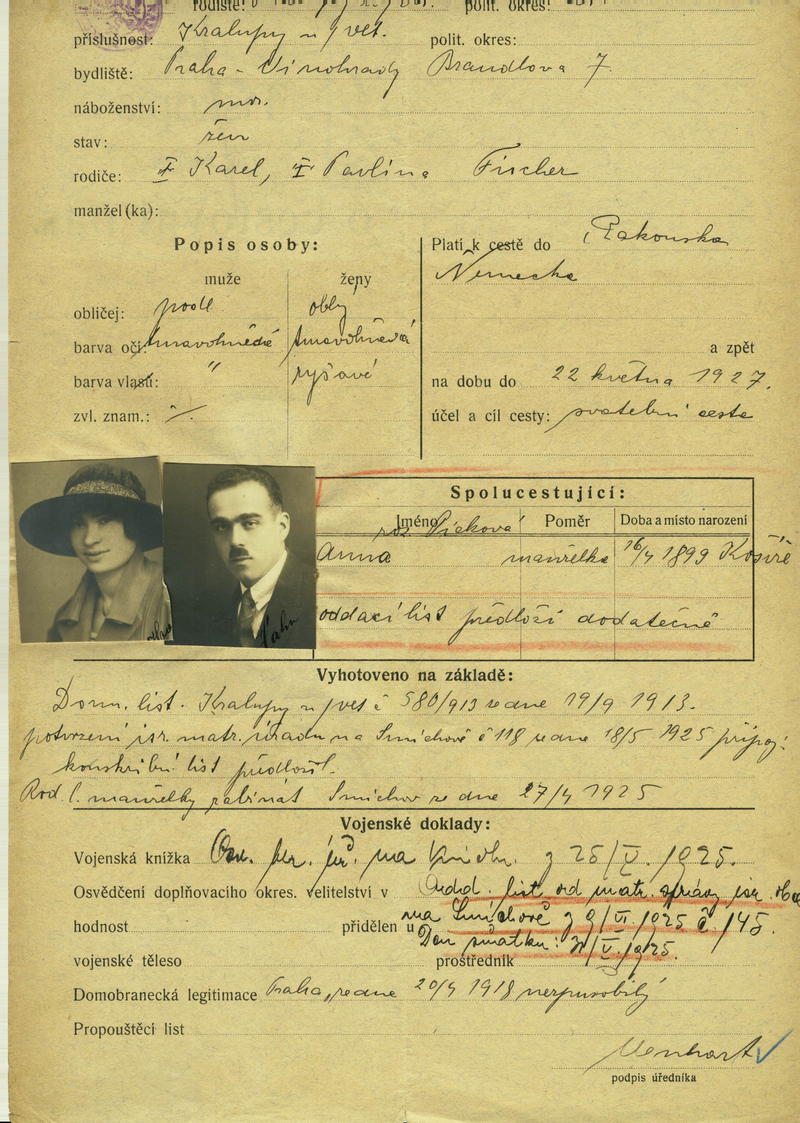 rodiště: polit. okres:
příslušnost: Kralupy n/Vlt. polit. okres:
bydliště: Praha - Vinohrady Brandlova 7.
náboženství:
stav: žen
rodiče: Karel, Pavlína Fischer
manžel (ka):
Popis osoby: Platí k cestě do Rakouska
Německa
muže ženy
obličej: podl. oblý
barva očí: tmavohnědé tmavohnědá
barva vlasů: " ryšavé
a zpět
na dobu do 22 května 1927.
zvl. znam.: ./. účel a cíl cesty: svatební cesta
Spolucestující:
Jméno Poměr Doba a místo narození
roz. Picková
Anna manželka 16/4 1899 Košíře
oddací list předloží dodatečně
Vyhotoveno na základě:
Dom. list. Kralupy n/Vlt č 580/913 ze dne 19/9 1913.
potvrzení isr. matr. úřadu na Smíchově č 118 ze dne 18/5 1925 připoj.
konskribní list předložil.
Rod. l. manželky rabinát Smíchov ze dne 27/4 1925
Vojenské doklady:
Vojenská knížka na z 25/V. 1925.
Osvědčení doplňovacího okres. velitelství v Oddd. list od matr. správy isr. obce
hodnost přidělen u na Smíchově z 9/VI. 1925 č. 145.
Den sňatku: 31/V. 1925.
vojenské těleso prostředník
Domobranecká legitimace Praha, ze dne 20/4 1918 nezpůsobilý
Propouštěcí list
Menhart
podpis úředníka